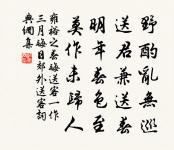 野酌亂無巡
送君兼送春
明年春色至
莫作未歸人
雍裕之春晦送客一作
三月晦日郊外送客詞
典網集